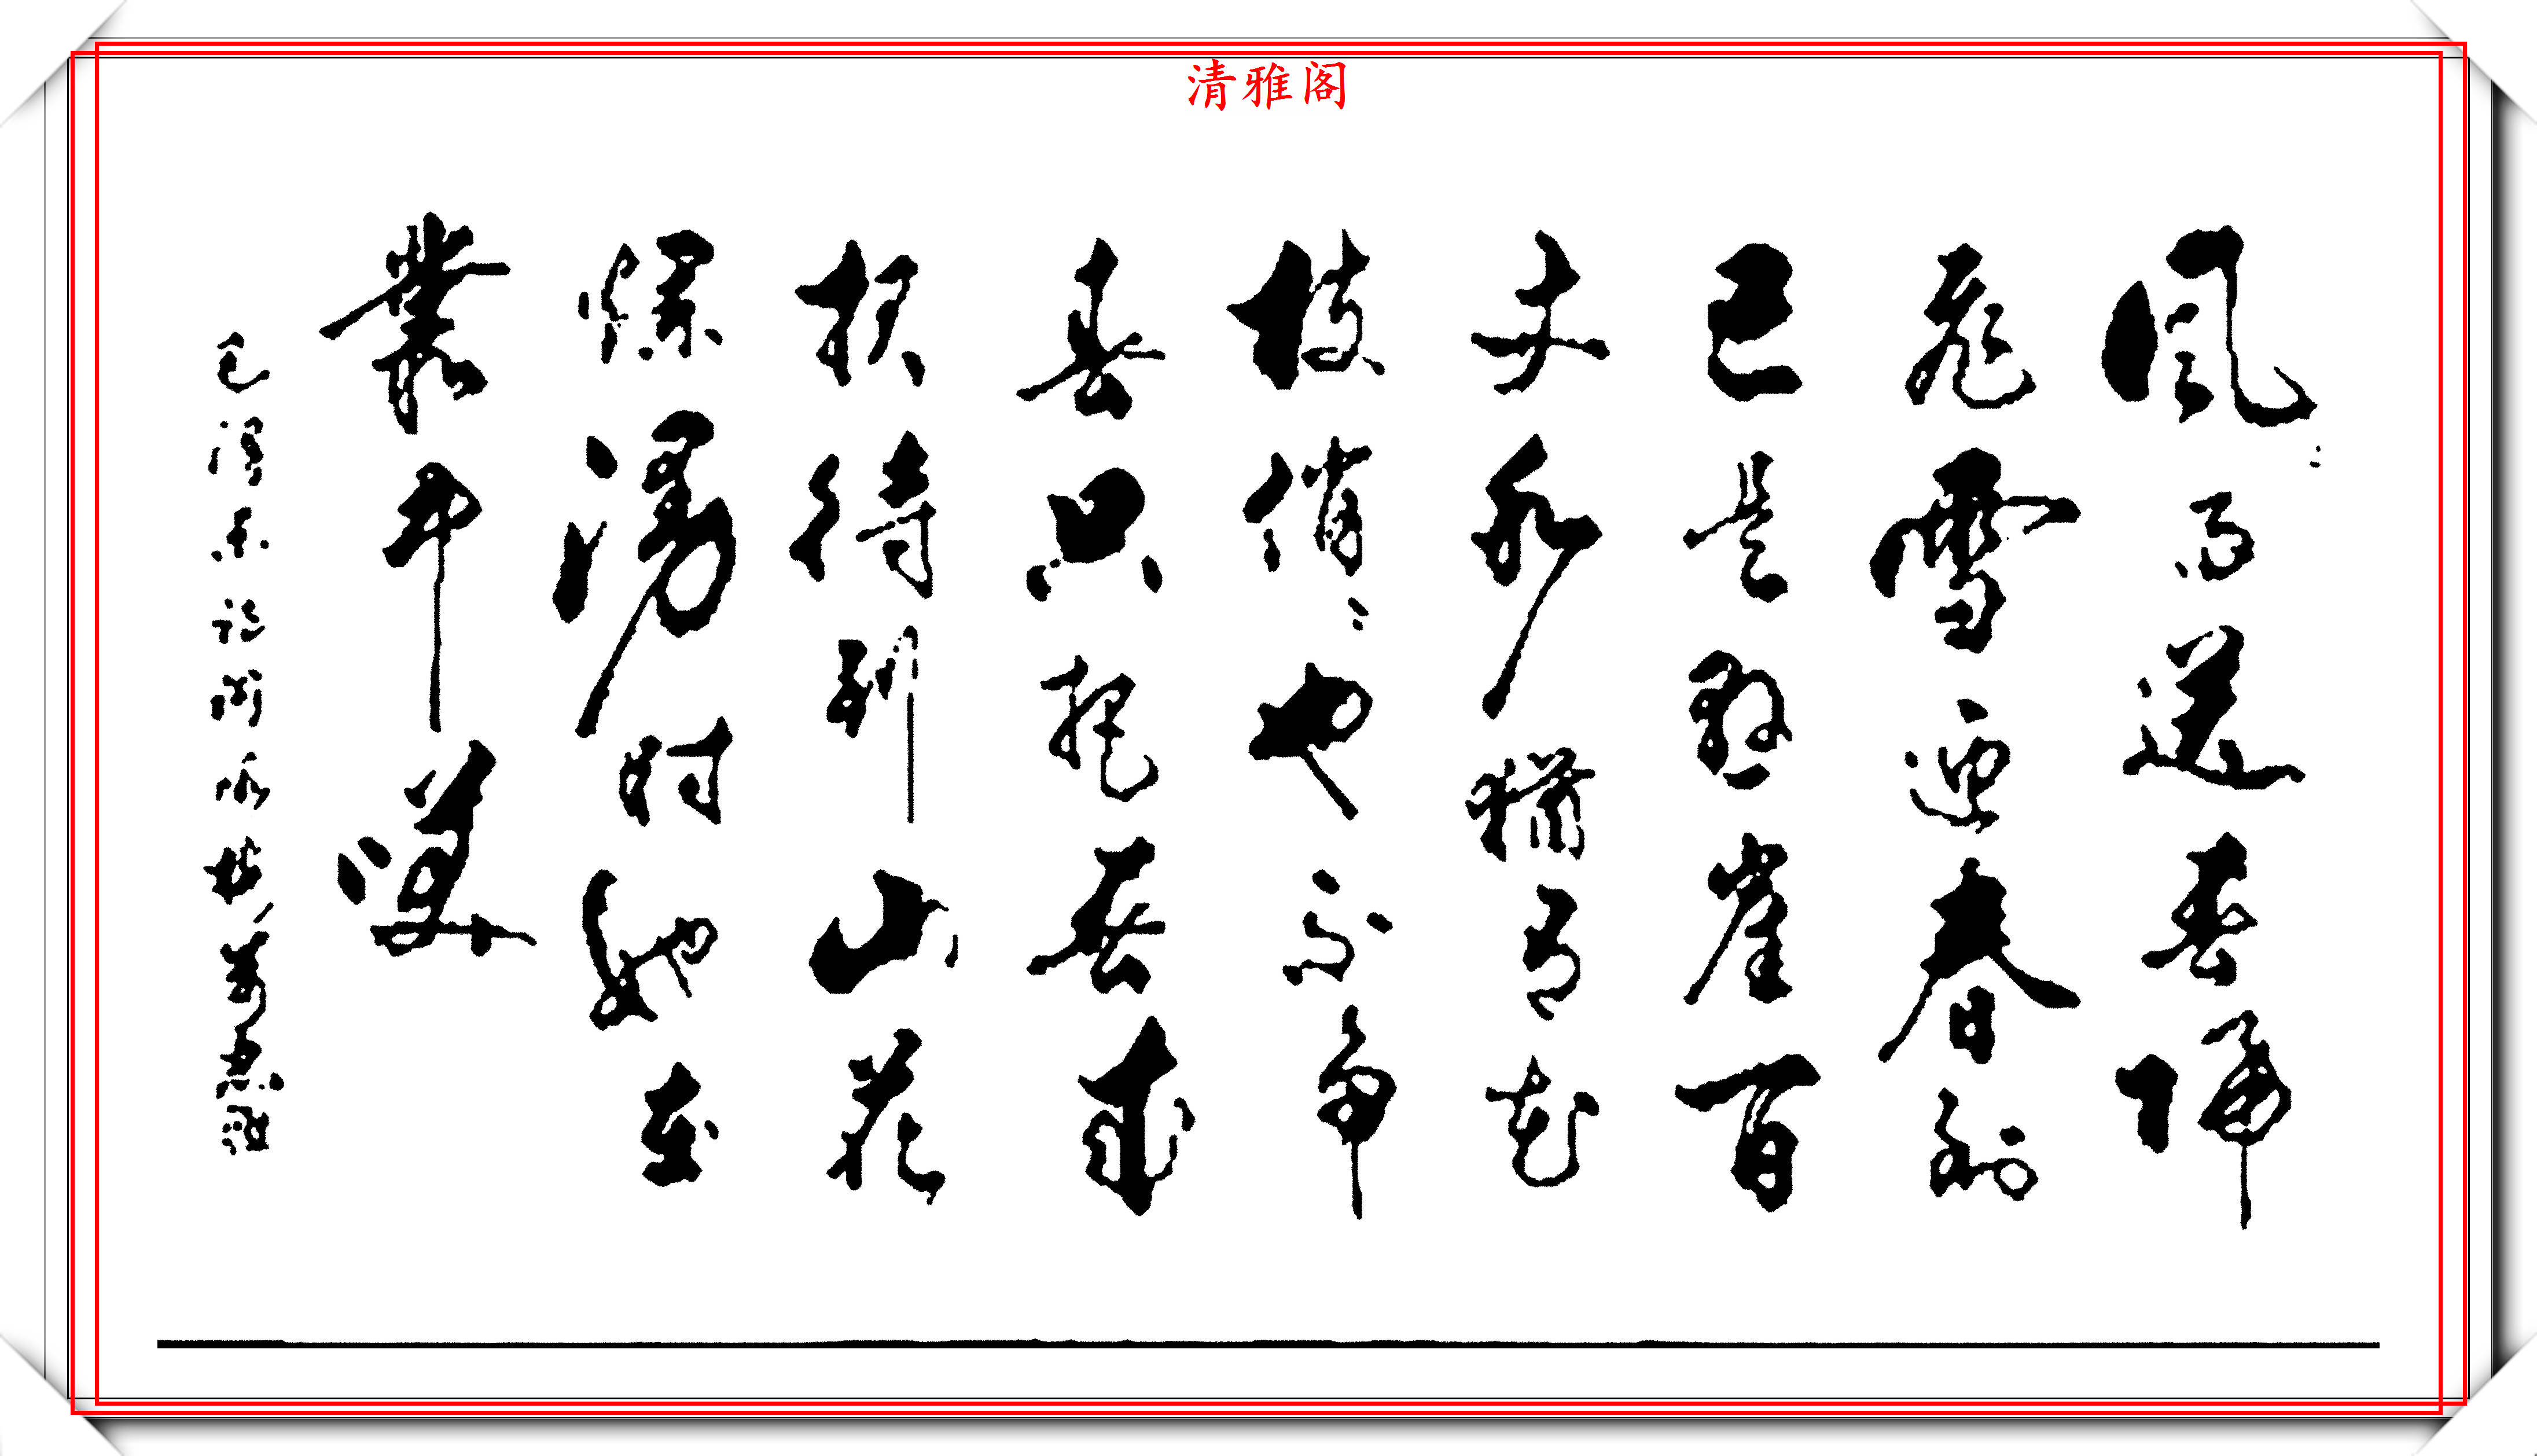 清雅阁
風雨送春歸
飛雪迎春到
已是懸崖百
丈冰猶有花
枝俏〻也不爭
春只把春來
報待到山花
爛漫時她在
叢中笑
毛澤東詞 咏梅